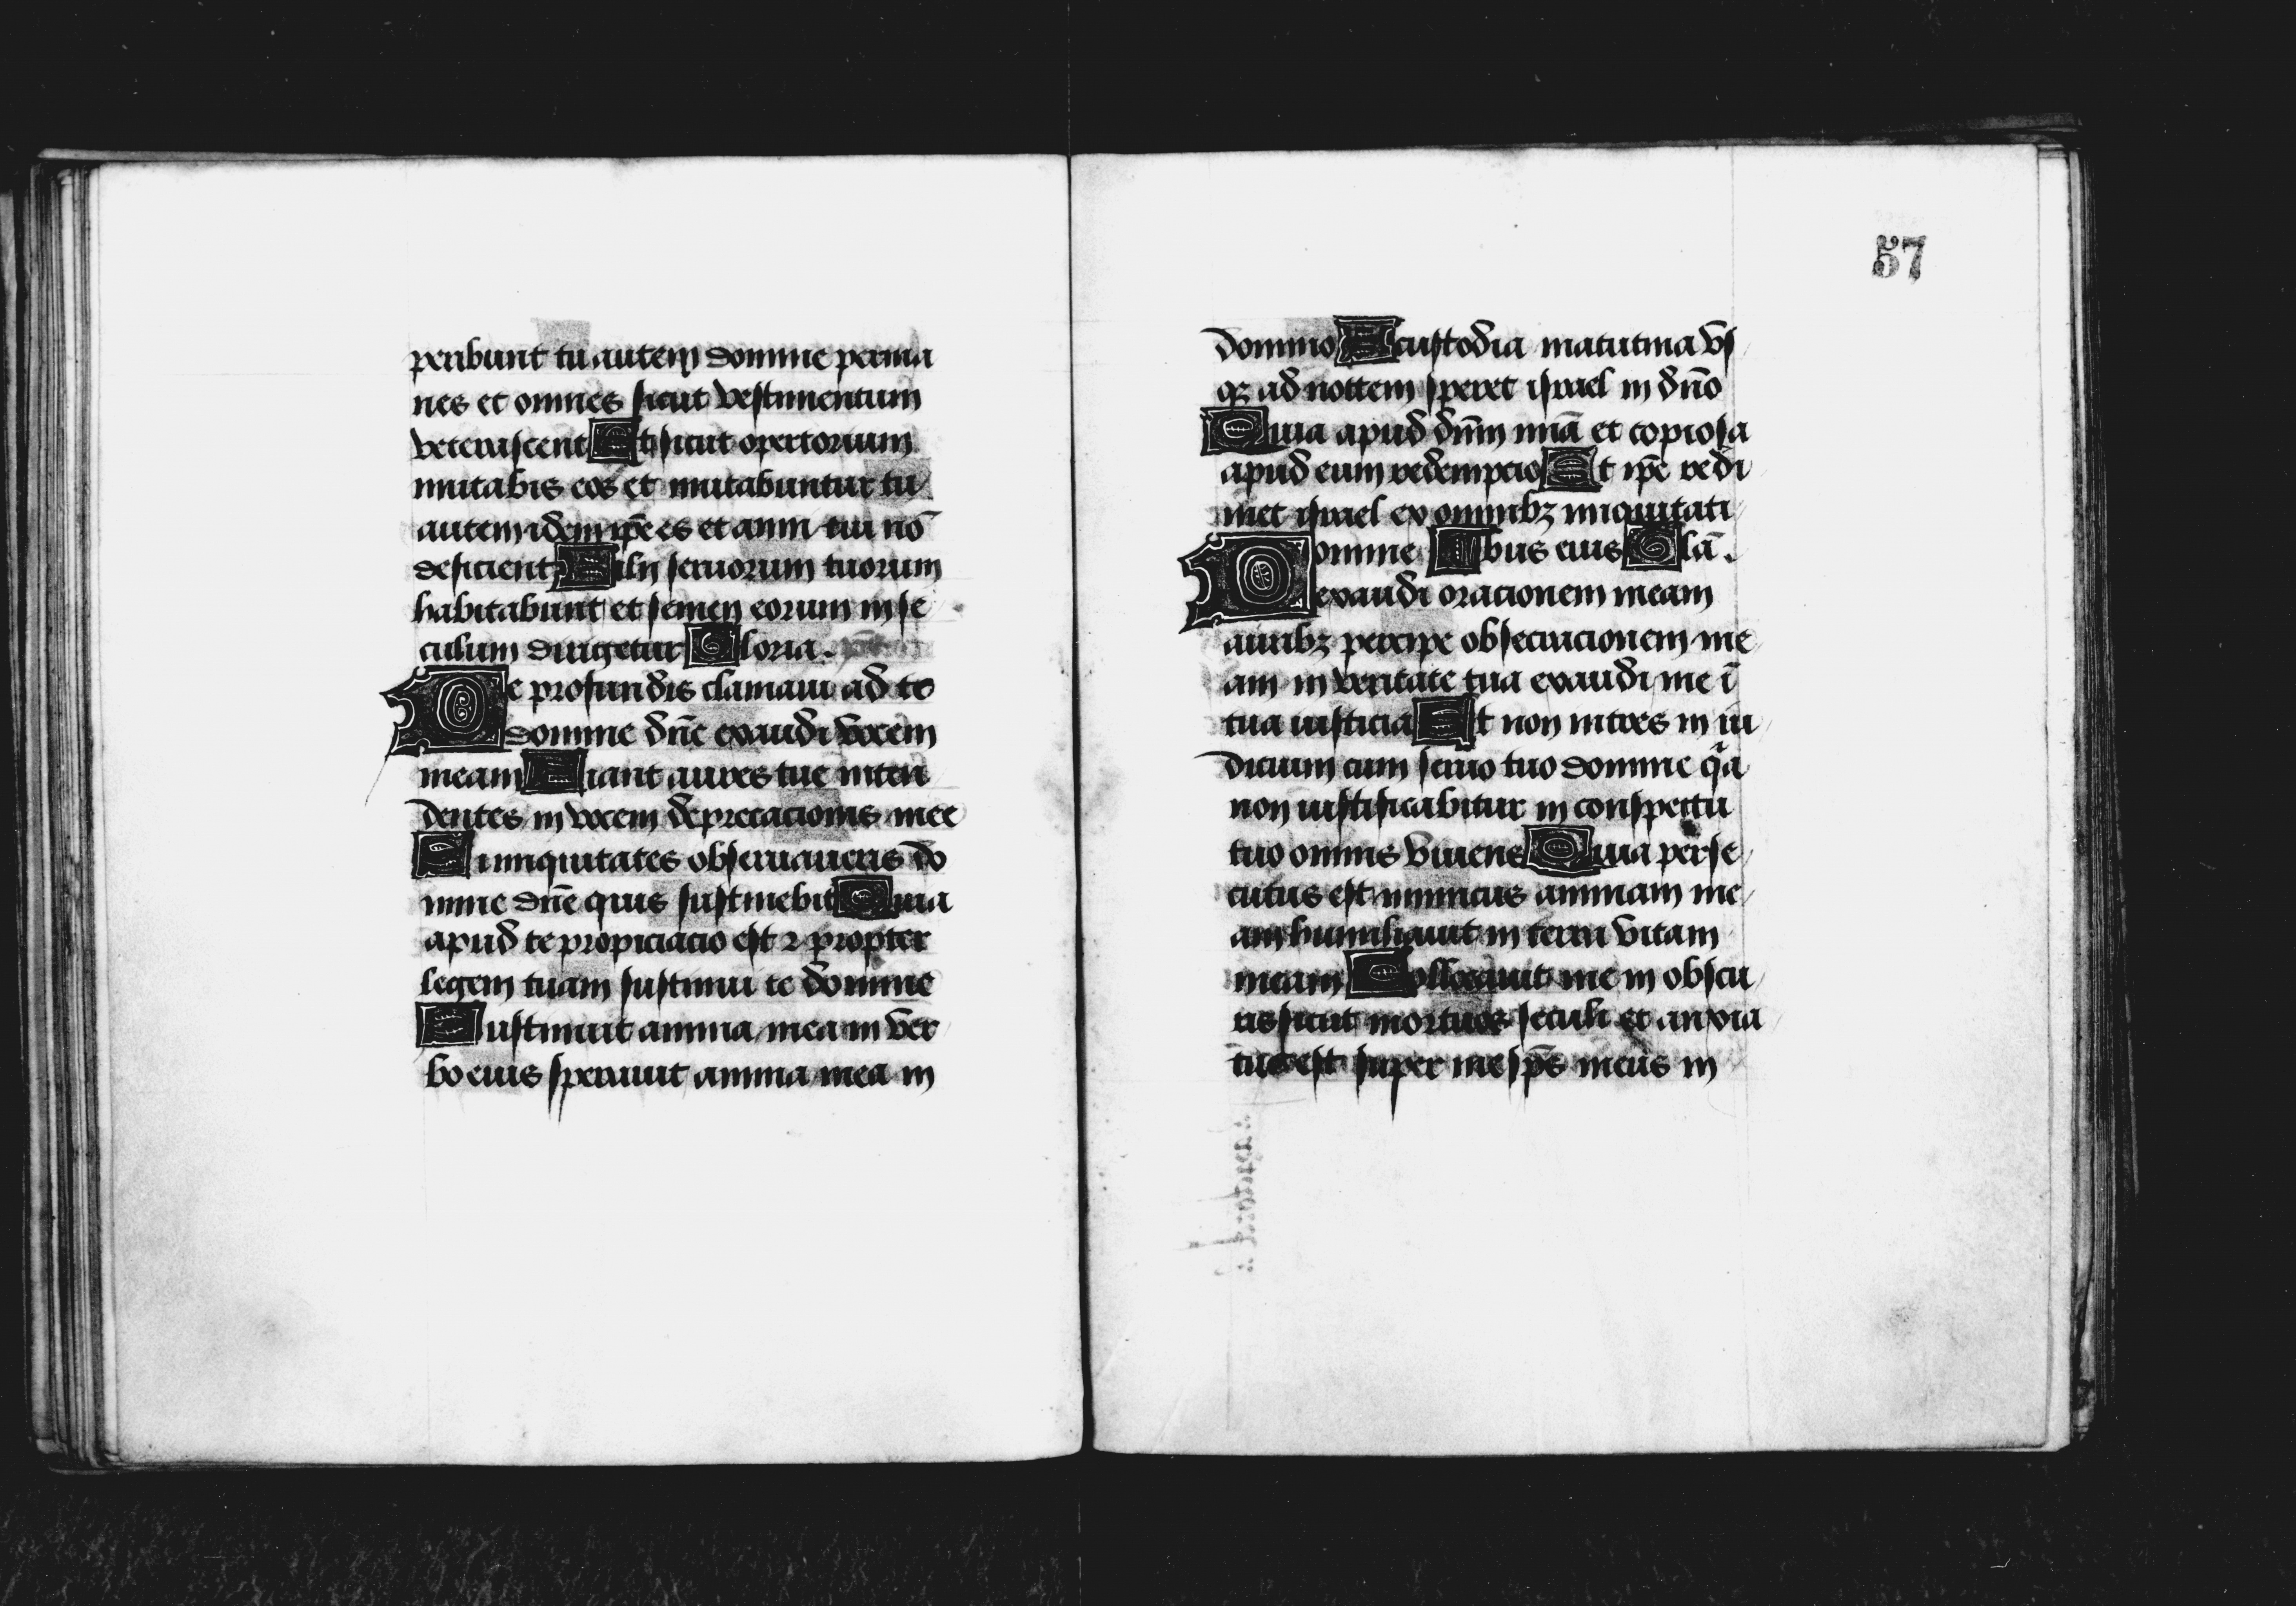 peribunt tu autem domine perma
nes et omnes sicut vestimentum
veterascent Et sicut opertorium
mutabis eos et mutabuntur tu
autem idem ip̄e es et anni tui nō
deficient Filij seruorum tuorum
habitabunt et semen eorum in se
culum dirigetur Gloria.
De profundis clamaui ad te
domine dn̄e exaudi vocem
meam Fiant aures tue inten
dentes in vocem deprecacionis mee
Si iniquitates obseruaueris do
mine dn̄e quis sustinebit Quia
apud te propiciacio est ⁊ propter
legem tuam sustinui te domine
Sustinuit anima mea in ver
bo eius sperauit anima mea in
57
domino A custodia matutina vs
qȝ ad noctem speret israel in dn̄o
Quia apud dn̄m mīa et copiosa
apud eum redempcio Et ip̄e redi
met israel ex omnibȝ iniquitati
bus eius Glā.
Domine
exaudi oracionem meam
auribȝ percipe obsecracionem me
am in veritate tua exaudi me ī
tua iusticia Et non intres in iu
dicium cum seruo tuo domine qͥa
non iustificabitur in conspectu
tuo omnis viuens Quia perse
cutus est inimicus animam me
am humiliauit in terra vitam
meam Collocauit me in obscu
ris sicut mortuos seculi et anxia
tus est super me sp̄s meus in